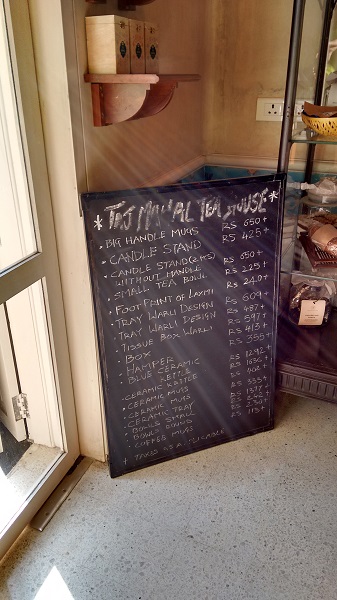 * TAJ MAHAL TEA HOUSE *
• BIG HANDLE MUGS RS 650+
• CANDLE STAND RS 425+
• CANDLE STAND (2 PCS) RS 650+
WITHOUT HANDLE RS 225+
• SMALL TEA BOWL RS 240+
• FOOT PRINT OF LAXMI RS 609+
• TRAY WARLI DESIGN RS 487+
• TRAY WARLI DESIGN RS 597+
• TISSUE BOX WARLI RS 413+
• BOX RS 355+
• HAMPER RS 1292+
• BLUE CERAMIC
KETTLE
• CERAMIC KETTLE
• CERAMIC MUGS RS 335+
• CERAMIC MUGS
• CERAMIC TRAY
• BOWLS SMALL
• BOWLS ROUND
MUGS RS 115+
+ TAXES AS APPLICABLE